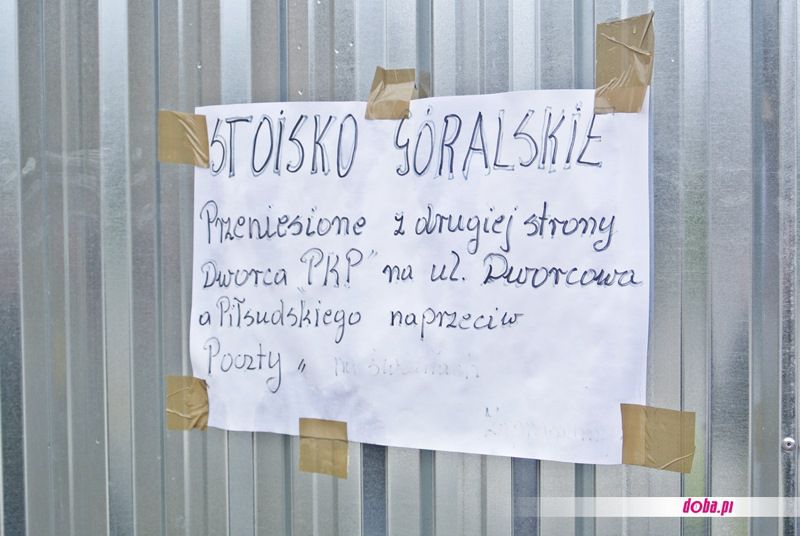 STOISKO GÓRALSKIE
Przeniesione z drugiej strony
Dworca "PKP" na ul. Dworcowa
a Piłsudskiego naprzeciw
Poczty "
doba.pl